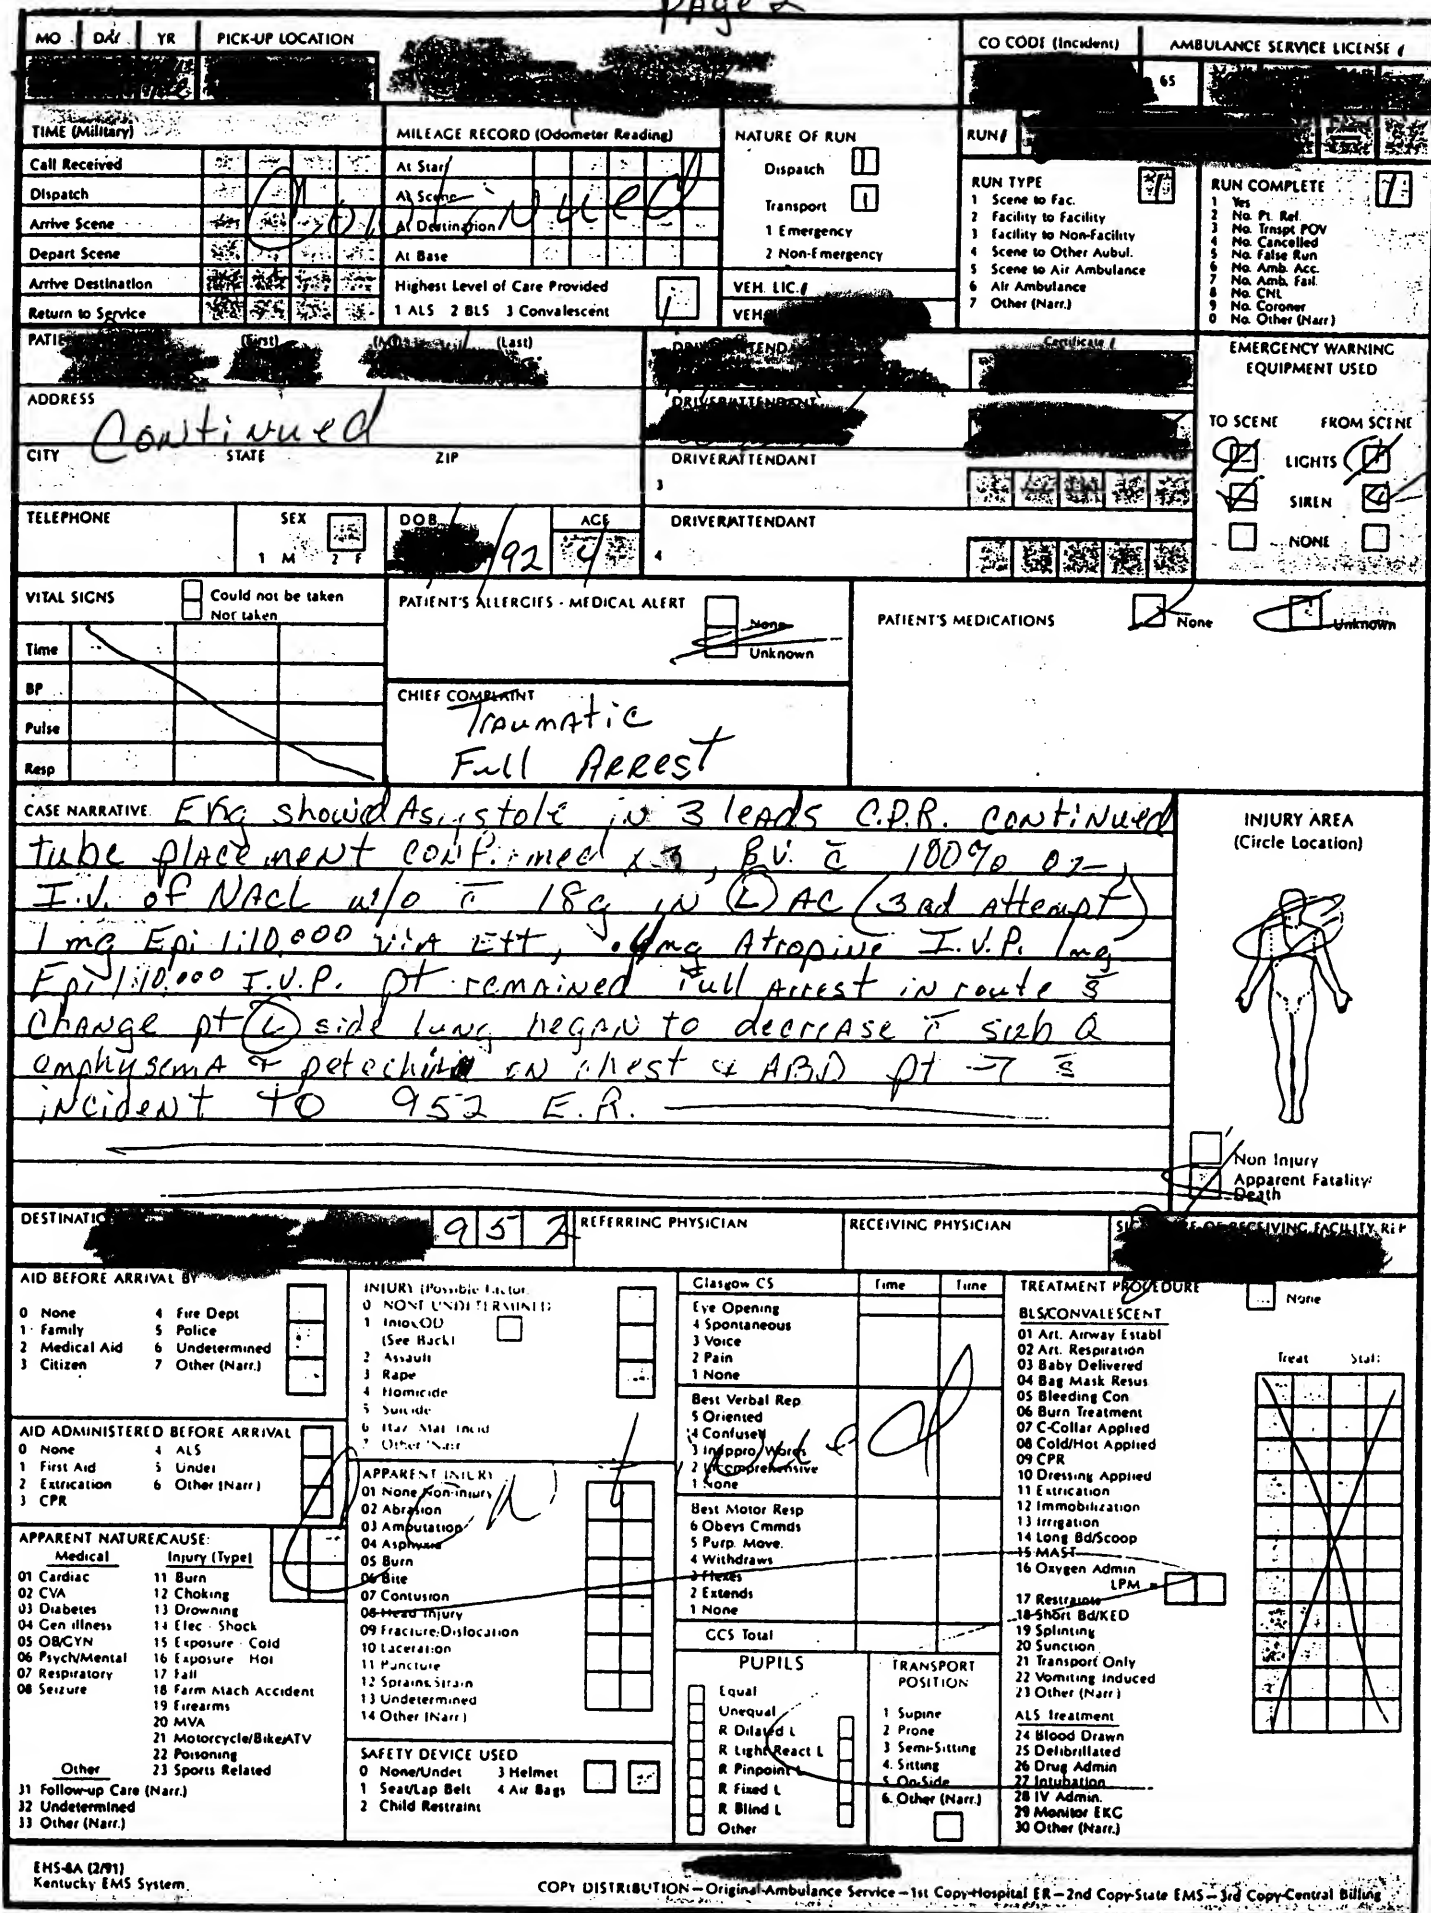 PAge 2
MO DAY YR PICK-UP LOCATION
CO CODE (Incident) AMBULANCE SERVICE LICENSE #
65
TIME (Military)
Call Received
Dispatch
Arrive Scene
Depart Scene
Arrive Destination
Return to Service
MILEAGE RECORD (Odometer Reading)
At Start
At Scene
At Destination
At Base
Continued
Highest Level of Care Provided
1 ALS 2 BLS 3 Convalescent
1
NATURE OF RUN
Dispatch 1
Transport 1
1 Emergency
2 Non-Emergency
VEH. LIC.#
VEH
RUN#
RUN TYPE 1
1 Scene to Fac.
2 Facility to Facility
3 Facility to Non-Facility
4 Scene to Other Aubul.
5 Scene to Air Ambulance
6 Air Ambulance
7 Other (Narr.)
RUN COMPLETE 1
1 Yes
2 No. Pt. Ref.
3 No. Trnspt POV
4 No. Cancelled
5 No. False Run
6 No. Amb. Acc.
7 No. Amb. Fail.
8 No. CNL
9 No. Coroner
0 No. Other (Narr)
(First) (Last)
Certificate #
ADDRESS
Continued
CITY STATE ZIP
DRIVER/ATTENDANT
DRIVER/ATTENDANT
3
DRIVER/ATTENDANT
4
EMERGENCY WARNING
EQUIPMENT USED
TO SCENE FROM SCENE
LIGHTS
SIREN
NONE
TELEPHONE
SEX
1 M 2 F
DOB
/92
AGE
4
VITAL SIGNS
Could not be taken
Not taken
Time
BP
Pulse
Resp
PATIENT'S ALLERGIES - MEDICAL ALERT
None
Unknown
PATIENT'S MEDICATIONS None Unknown
CHIEF COMPLAINT
Traumatic
Full Arrest
CASE NARRATIVE Ekg showid Asystole in 3 leads C.P.R. continued
tube placement confirmed x3, B.V. c̄ 100% o2
I.V. of NACL w/o c̄ 18g in (L) AC (3ad Attempt)
1 mg Epi 1:10,000 via Ett, mg Atropine I.V.P. 1mg
Epi 1:10,000 I.V.P. pt remained Full Arrest in route s̄
change pt (L) side lung began to decrease c̄ sub Q
emphysema & petechiae on chest & ABD pt s̄
incident to 952 E.R.
INJURY AREA
(Circle Location)
Non Injury
Apparent Fatality/
Death
952
REFERRING PHYSICIAN
RECEIVING PHYSICIAN
OF RECEIVING FACILITY REP
AID BEFORE ARRIVAL BY
0 None 4 Fire Dept
1 Family 5 Police
2 Medical Aid 6 Undetermined
3 Citizen 7 Other (Narr.)
AID ADMINISTERED BEFORE ARRIVAL
0 None 4 ALS
1 First Aid 5 Under
2 Extrication 6 Other (Narr)
3 CPR
APPARENT NATURE/CAUSE:
Medical Injury (Type)
01 Cardiac 11 Burn
02 CVA 12 Choking
03 Diabetes 13 Drowning
04 Gen illness 14 Elec - Shock
05 OB/GYN 15 Exposure - Cold
06 Psych/Mental 16 Exposure - Hot
07 Respiratory 17 Fall
08 Seizure 18 Farm Mach Accident
19 Firearms
20 MVA
21 Motorcycle/Bike/ATV
22 Poisoning
Other 23 Sports Related
31 Follow-up Care (Narr.)
32 Undetermined
33 Other (Narr.)
INJURY (Possible Factor)
0 NONE UNDETERMINED
1 Intox/OD
(See Back)
2 Assault
3 Rape
4 Homicide
5 Suicide
6 Haz Mat Incid
7 Other Narr
Continued
APPARENT INJURY
01 None Non-injury
02 Abrasion
03 Amputation
04 Asphyxia
05 Burn
06 Bite
07 Contusion
08 Head Injury
09 Fracture/Dislocation
10 Laceration
11 Puncture
12 Sprains/Strain
13 Undetermined
14 Other (Narr)
SAFETY DEVICE USED
0 None/Undet 3 Helmet
1 Seat/Lap Belt 4 Air Bags
2 Child Restraint
Glasgow CS Time Time
Eye Opening
4 Spontaneous
3 Voice
2 Pain
1 None
Best Verbal Rep
5 Oriented
4 Confused
3 Inappro Words
2 Incomprehensive
1 None
Best Motor Resp
6 Obeys Cmmds
5 Purp. Move.
4 Withdraws
3 Flexes
2 Extends
1 None
GCS Total
PUPILS
Equal
Unequal
R Dilated L
R Light React L
R Pinpoint L
R Fixed L
R Blind L
Other
TRANSPORT
POSITION
1 Supine
2 Prone
3 Semi-Sitting
4. Sitting
5 On-Side
6. Other (Narr.)
TREATMENT PROCEDURE None
BLS/CONVALESCENT
01 Art. Airway Establ
02 Art. Respiration
03 Baby Delivered
04 Bag Mask Resus
05 Bleeding Con
06 Burn Treatment
07 C-Collar Applied
08 Cold/Hot Applied
09 CPR
10 Dressing Applied
11 Extrication
12 Immobilization
13 Irrigation
14 Long Bd/Scoop
15 MAST
16 Oxygen Admin
LPM =
17 Restraints
18 Short Bd/KED
19 Splinting
20 Sunction
21 Transport Only
22 Vomiting Induced
23 Other (Narr)
ALS Treatment
24 Blood Drawn
25 Defibrillated
26 Drug Admin
27 Intubation
28 IV Admin.
29 Monitor EKG
30 Other (Narr.)
Treat Staff
EHS-8A (2/91)
Kentucky EMS System
COPY DISTRIBUTION—Original-Ambulance Service—1st Copy-Hospital ER—2nd Copy-State EMS—3rd Copy-Central Billing